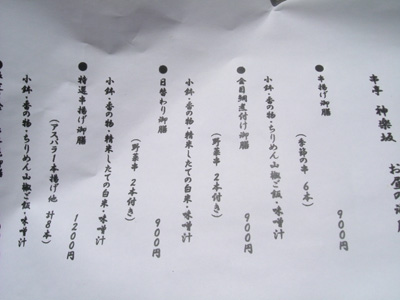 串亭 神楽坂 お昼の
●串揚げ御膳
(季節の串 6本)
900円
小鉢・香の物・ちりめん山椒ご飯・味噌汁
●金目鯛煮付け御膳
(野菜串 2本付き)
900円
小鉢・香の物・精米したての白米・味噌汁
●日替わり御膳
(野菜串 2本付き)
900円
小鉢・香の物・精米したての白米・味噌汁
●特選串揚げ御膳
(アスパラ1本揚げ他 計8本)
1200円
小鉢・香の物・ちりめん山椒ご飯・味噌汁